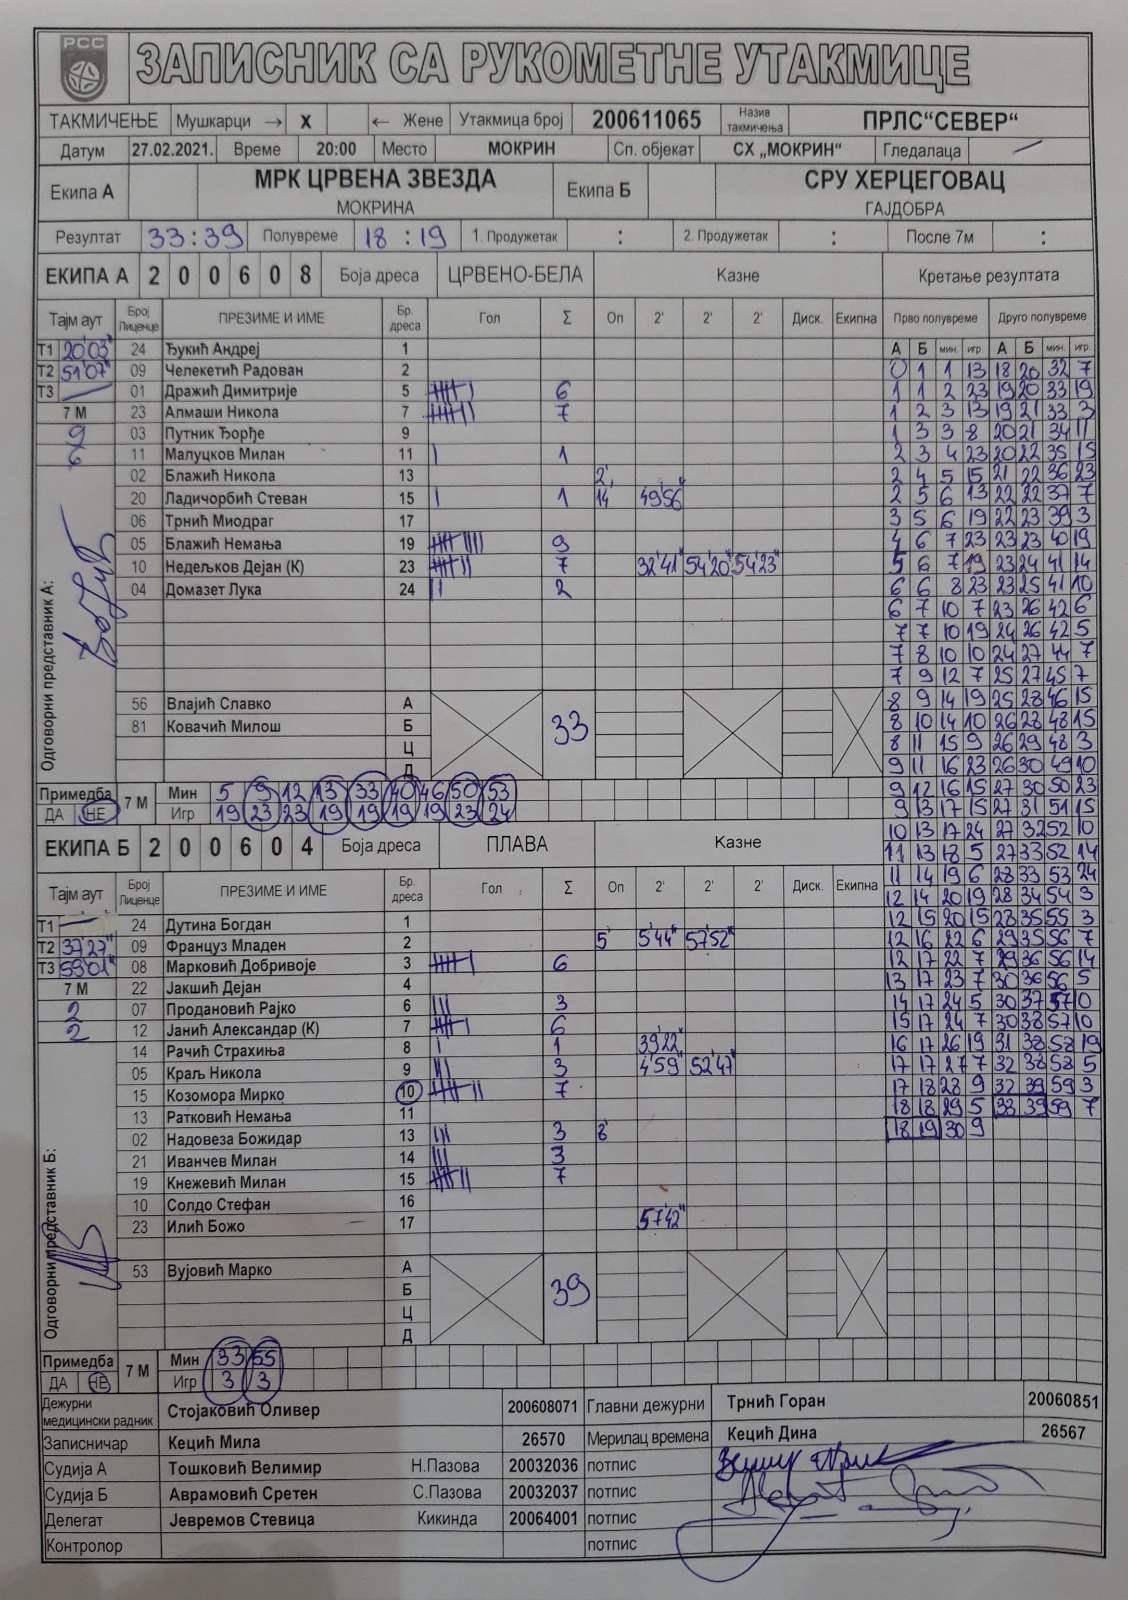 РСС
ЗАПИСНИК СА РУКОМЕТНЕ УТАКМИЦЕ
ТАКМИЧЕЊЕ Мушкарци → X ← Жене Утакмица број 200611065 Назив такмичења ПРЛС“СЕВЕР“
Датум 27.02.2021. Време 20:00 Место МОКРИН Сп. објекат СХ „МОКРИН“ Гледалаца —
Екипа А МРК ЦРВЕНА ЗВЕЗДА Екипа Б СРУ ХЕРЦЕГОВАЦ
МОКРИНА ГАЈДОБРА
Резултат 33:39 Полувреме 18:19 1. Продужетак : 2. Продужетак : После 7м :
ЕКИПА А 2 0 0 6 0 8 Боја дреса ЦРВЕНО-БЕЛА Казне Кретање резултата
Тајм аут Број Лиценце ПРЕЗИМЕ И ИМЕ Бр. дреса Гол Σ Оп 2' 2' 2' Диск. Екипна Прво полувреме Друго полувреме
Т1 20'03" 24 Ђукић Андреј 1 А Б мин. игр. А Б мин. игр.
Т2 51'07" 09 Челекетић Радован 2 0 1 1 13 18 20 32 7
Т3 — 01 Дражић Димитрије 5 6 1 1 2 23 19 20 33 19
7 М 23 Алмаши Никола 7 7 1 2 3 13 19 21 33 3
9 03 Путник Ђорђе 9 1 3 3 8 20 21 34 11
6 11 Малуцков Милан 11 1 2 3 4 23 20 22 35 15
02 Блажић Никола 13 2' 2 4 5 15 21 22 36 23
20 Ладичорбић Стеван 15 1 14 49'56" 2 5 6 13 22 22 37 7
06 Трнић Миодраг 17 3 5 6 19 22 23 39 3
05 Блажић Немања 19 9 4 6 7 23 23 23 40 19
10 Недељков Дејан (К) 23 7 32'41" 54'20" 54'23" 5 6 7 19 23 24 41 14
04 Домазет Лука 24 2 6 6 8 23 23 25 41 10
6 7 10 7 23 26 42 6
7 7 10 19 24 26 42 5
7 8 10 10 24 27 44 7
7 9 12 7 25 27 45 7
Одговорни представник А:
56 Влајић Славко А 8 9 14 19 25 28 46 15
81 Ковачић Милош Б 33 8 10 14 10 26 28 48 15
Ц 8 11 15 9 26 29 48 3
Д 9 11 16 23 26 30 49 10
Примедба 7 М Мин 5 9 12 13 33 40 46 50 53 9 12 16 15 27 30 50 23
ДА НЕ Игр 19 23 23 19 19 19 19 23 24 9 13 17 15 27 31 51 15
10 13 17 24 27 32 52 10
ЕКИПА Б 2 0 0 6 0 4 Боја дреса ПЛАВА Казне 11 13 18 5 27 33 52 14
Тајм аут Број Лиценце ПРЕЗИМЕ И ИМЕ Бр. дреса Гол Σ Оп 2' 2' 2' Диск. Екипна 11 14 19 6 28 33 53 24
12 14 20 19 28 34 54 3
Т1 — 24 Дутина Богдан 1 12 15 20 15 28 35 55 3
Т2 37'27" 09 Француз Младен 2 5' 5'44" 57'52" 12 16 22 6 29 35 56 7
Т3 59'01" 08 Марковић Добривоје 3 6 12 17 22 7 29 36 56 14
7 М 22 Јакшић Дејан 4 13 17 23 7 30 36 56 5
2 07 Продановић Рајко 6 3 14 17 24 5 30 37 57 10
2 12 Јанић Александар (К) 7 6 15 17 24 7 30 38 57 10
14 Рачић Страхиња 8 1 39'22" 16 17 26 19 31 38 58 19
05 Краљ Никола 9 3 4'59" 52'47" 17 17 27 7 32 38 58 5
15 Козомора Мирко 10 7 17 18 28 9 32 39 59 3
13 Ратковић Немања 11 18 18 29 5 33 39 59 7
02 Надовеза Божидар 13 3 8' 18 19 30 9
21 Иванчев Милан 14 3
19 Кнежевић Милан 15 7
10 Солдо Стефан 16
23 Илић Божо 17 57'42"
Одговорни представник Б:
53 Вујовић Марко А
Б 39
Ц
Д
Примедба 7 М Мин 33 55
ДА НЕ Игр 3 3
Дежурни медицински радник Стојаковић Оливер 200608071 Главни дежурни Трнић Горан 20060851
Записничар Кецић Мила 26570 Мерилац времена Кецић Дина 26567
Судија А Тошковић Велимир Н.Пазова 20032036 потпис
Судија Б Аврамовић Сретен С.Пазова 20032037 потпис
Делегат Јевремов Стевица Кикинда 20064001 потпис
Контролор потпис